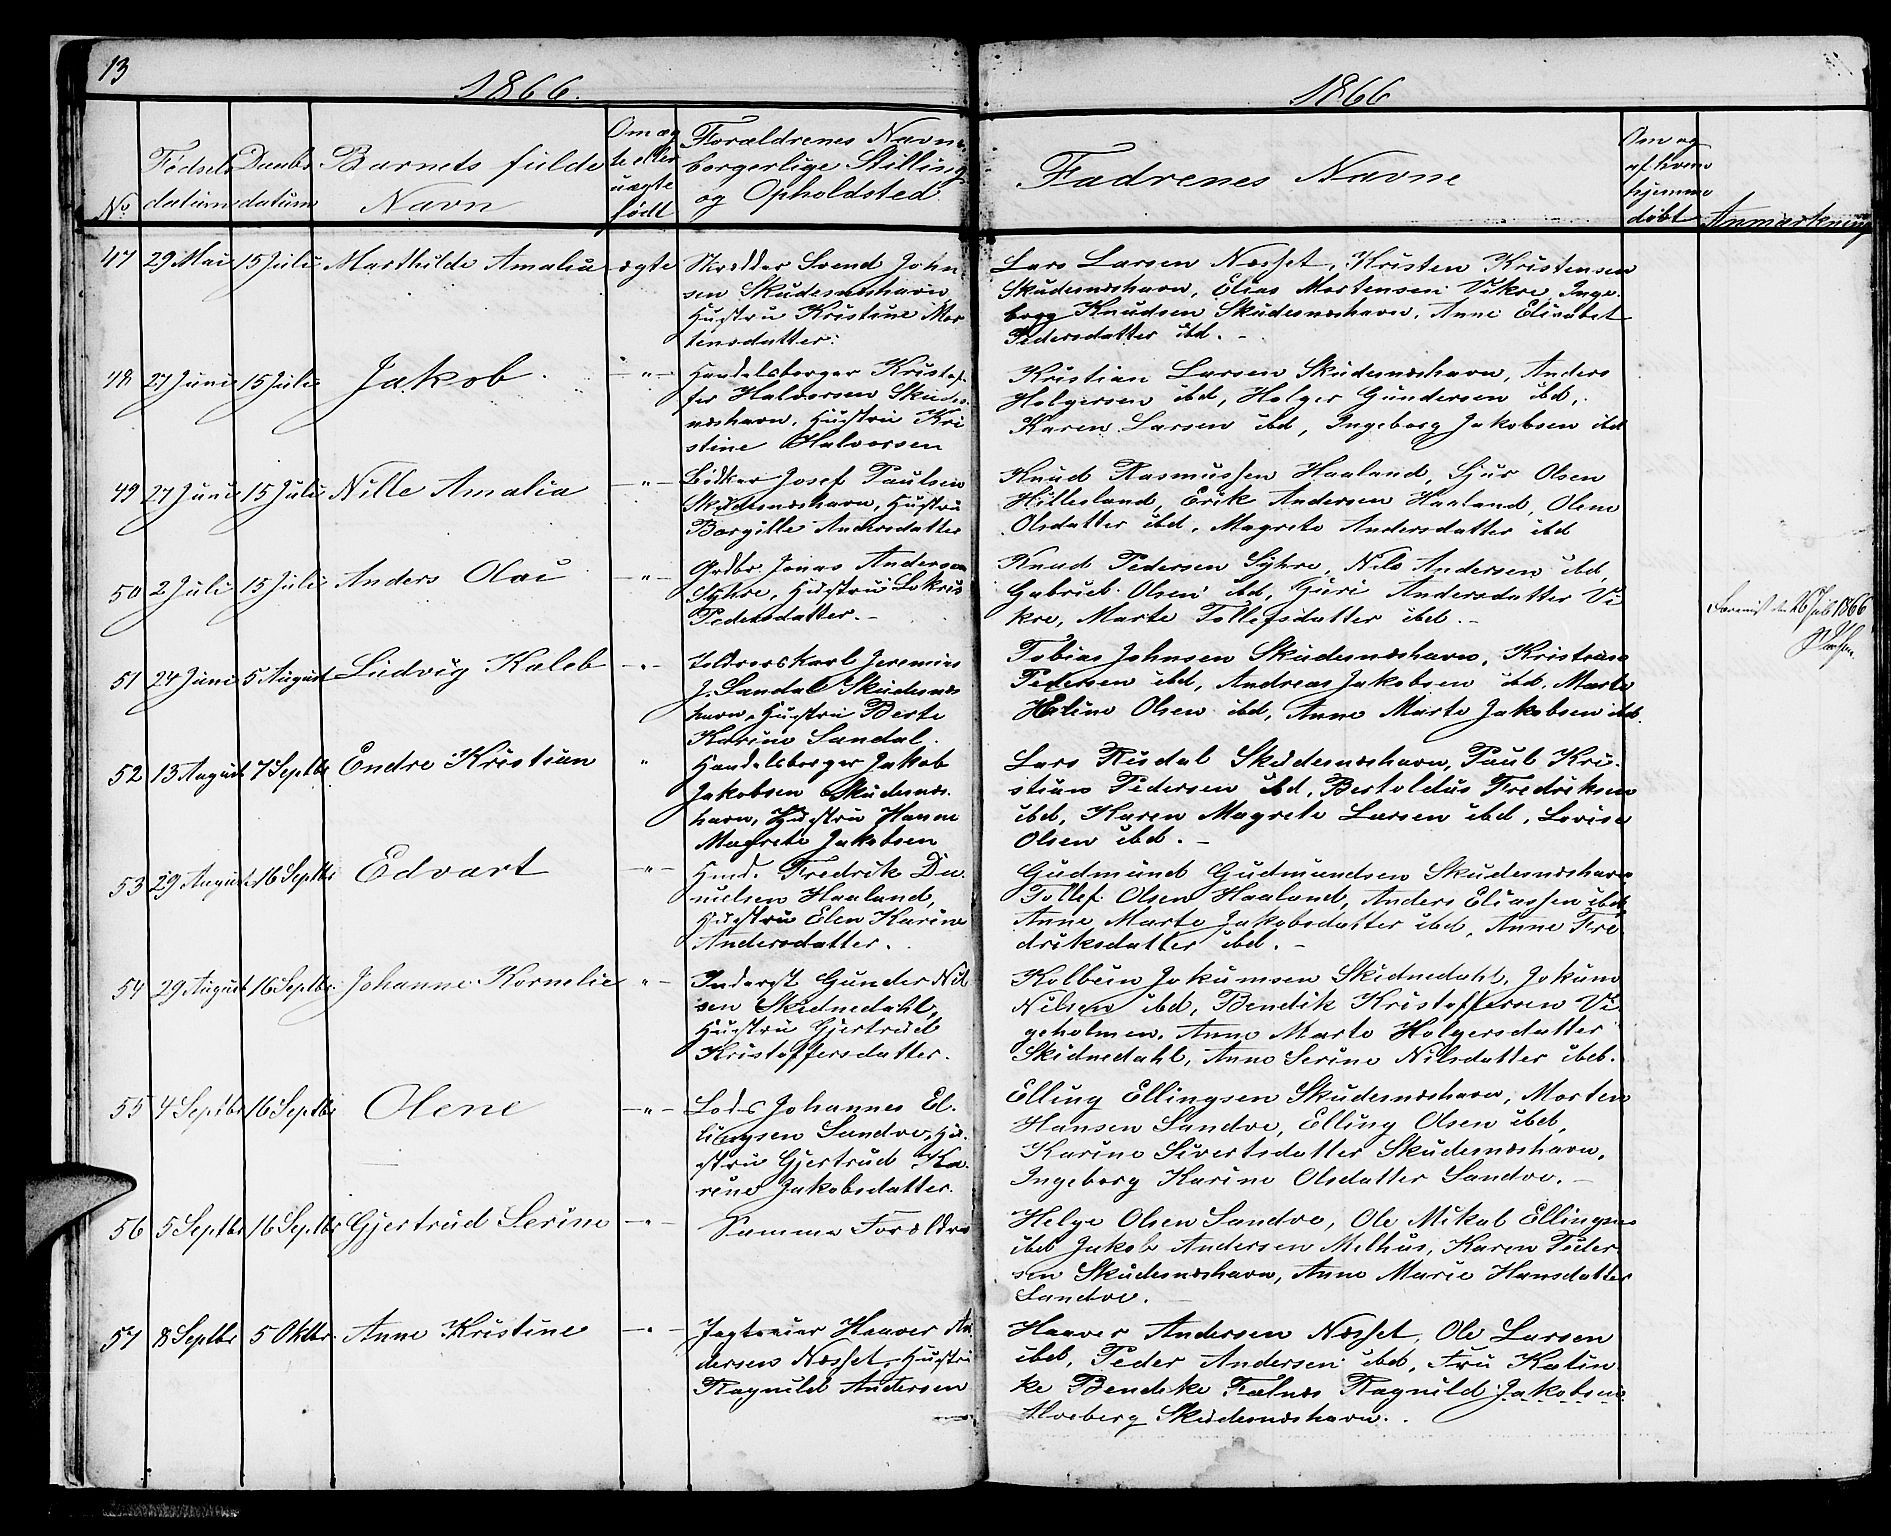 13
1866.
1866
No
Fødsels
datum
Daabs
datum
Barnets fulde
Navn
Om æg
te eller
uægte
født
Forældrenes Navn
borgerlige Stilling
og Opholdsted
Fadrenes Navne
Om og
af hvem
hjemme
døbt
Anmærkning
47 29 Mai 15 Juli Marthilde Amalia ægte
Skrædder Svend John
sen Skudesnæshavn
Hustru Kristine Mor
tensdatter.
Lars Larsen Næsset, Kristen Kristensen
Skudesnæshavn, Elias Mortensen Vikre, Inge
borg Knudsen Skudesnæshavn, Anne Elisabet
Pedersdatter ibd. -
48 27 Juni 15 Juli Jakob. -"-
Handelsborger Kristof
fer Halvorsen Skudes
næshavn, Hustru Kri
stine Halvorsen
Kristian Larsen Skudesnæshavn, Anders
Holgersen ibd, Holger Gundersen ibd,
Karen Larsen ibd, Ingeborg Jakobsen ibd
49 27 Juni 15 Juli Nille Amalia -"-
Bødker Josef Paulsen
Skudesnæshavn, Hustru
Borgille Andersdatter
Knud Rasmussen Haaland, Sjur Olsen
Hillesland, Erik Andersen Haaland, Olene
Olsdatter ibd, Magrete Andersdatter ibd
50 2 Juli 15 Juli Anders Olai -"-
Grdbr. Jonas Andersen
Syhre, Hustru Lokris
Pedersdatter. -
Knud Pedersen Syhre, Nils Andersen ibd,
Gabriel Olsen ibd, Guri Andersdatter Vi
kre, Marte Tollefsdatter ibd. -
26 Juli 1866
51 24 Juni 5 August Ludvig Kaleb -"-
Toldroerskarl Jeremias
J. Sandal Skudesnæs
havn, Hustru Berte
Karine Sandal.
Tobias Johnsen Skudesnæshavn, Kristian
Pedersen ibd, Andreas Jakobsen ibd, Marte
Heline Olsen ibd, Anne Marte Jakobsen ibd.
52 13 August 7 Septbr Endre Kristian "
Handelsborger Jakob
Jakobsen Skudesnæs.
havn, Hustru Hanne
Magrete Jakobsen
Lars Risdal Skudesnæshavn, Paul Kri.
stian Pedersen ibd, Bertoldus Fredriksen
ibd, Karen Magrete Larsen ibd, Lovise
Olsen ibd. -
53 29 August 16 Septbr Edvart -"-
Hmd. Fredrik Da
nielsen Haaland,
Hustru Elen Karine
Andersdatter.
Gudmund Gudmundsen Skudesnæshavn
Tollef Olsen Haaland, Anders Eliassen ibd,
Anne Marte Jakobsdatter ibd, Anne Fre
driksdatter ibd. -
54 29 August 16 Septbr Johanne Kornelie "-
Inderst Gunder Nil
sen Skidnedahl,
Hustru Gjertrud
Kristoffersdatter.
Kolbein Jokumsen Skidnedahl, Jokum
Nilsen ibd, Bendik Kristoffersen Vi
geholmen, Anne Marte Holgersdatter
Skidnedahl, Anne Serine Nilsdatter ibd.
55 4 Septbr 16 Septbr Olene -"-
Lods Johannes El.
lingsen Sandve, Hu.
stru Gjertrud Ka.
rine Jakobsdatter.
Elling Ellingsen Skudesnæshavn, Morten
Hansen Sandve, Elling Olsen ibd,
Karine Sivertsdatter Skudesnæshavn,
Ingeborg Karine Olsdatter Sandve. -
56 5 Septbr 16 Septbr Gjertrud Serine -"-
Samme Forældre
Helge Olsen Sandve, Ole Mikal Ellingsen
ibd Jakob Andersen Melhus, Karen Peder
sen Skudesnæshavn, Anne Marie Hansdatter
Sandve. -
57 8 Septbr 5 Oktbr Anne Kristine -"-
Jagteier Haaver An
dersen Næsset, Hustru
Ragnild Andersen
Haaver Andersen Næsset, Ole Larsen
ibd, Peder Andersen ibd, Fru Kalin
ke Bendeke Falnæs Ragnild Jakobsen
Skudesnæshavn.